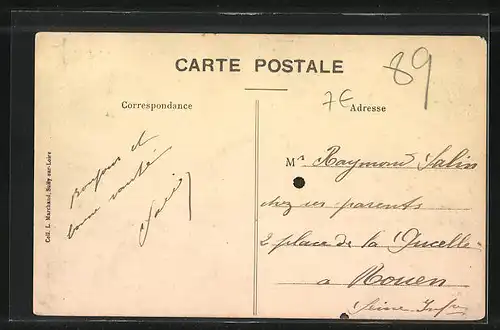 CARTE POSTALE
89
7€
Correspondance
Adresse
Coll. L. Marchand, Sully-sur-Loire
Bonjour et
bonne santé
Mr Raymond Salin
chez ses parents
2 place de la Pucelle
a Rouen
Seine Infre